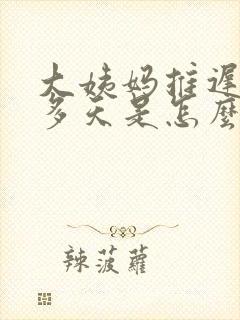 大姨妈推遲
多天是怎麼
辣菠蘿